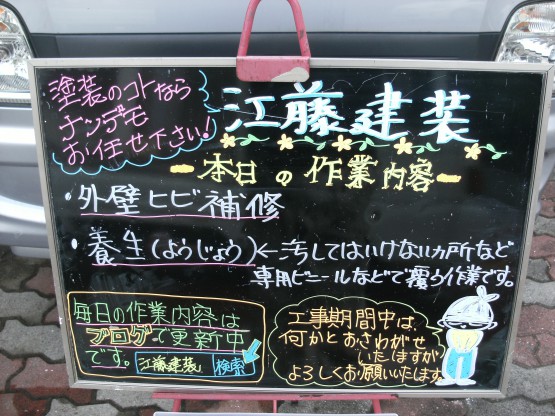 塗装のコトなら
ナンデモ
お任せ下さい!
江藤建装
ー本日の作業内容ー
・外壁ヒビ補修
・養生(ようじょう)←汚してはいけないカ所など
専用ビニールなどで覆う作業です。
毎日の作業内容は
ブログで更新中
です。
江藤建装 検索
工事期間中は、
何かとおさわがせ
いたしますが
よろしくお願いいたします。